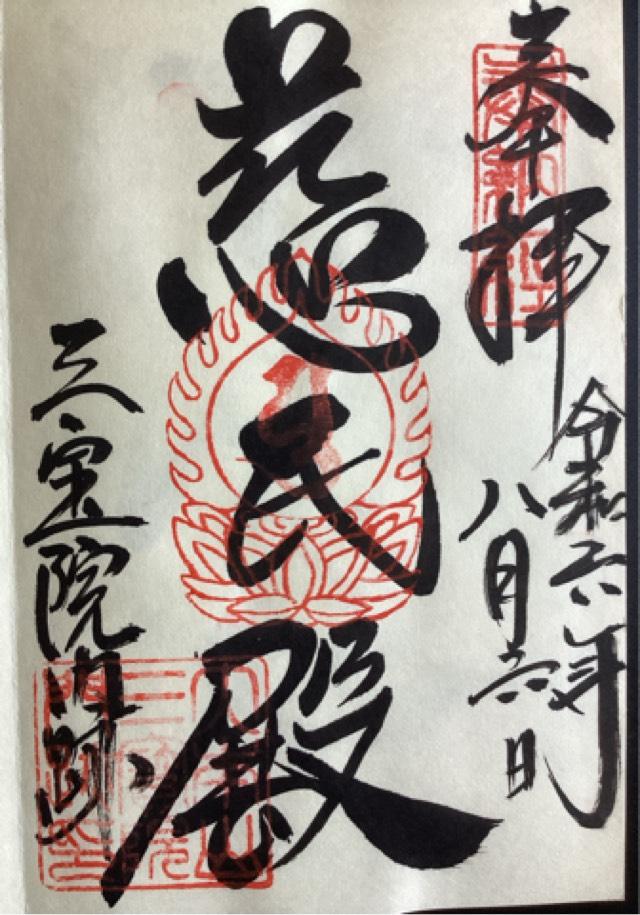 奉拝
令和六年
八月六日
慈氏殿
三宝院門跡